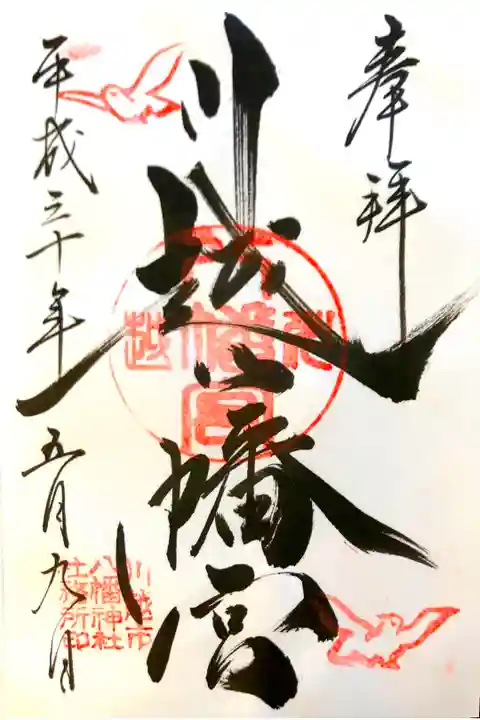 奉拝
川越八幡宮
平成三十年五月九日
川越市
八幡神社
社務所印